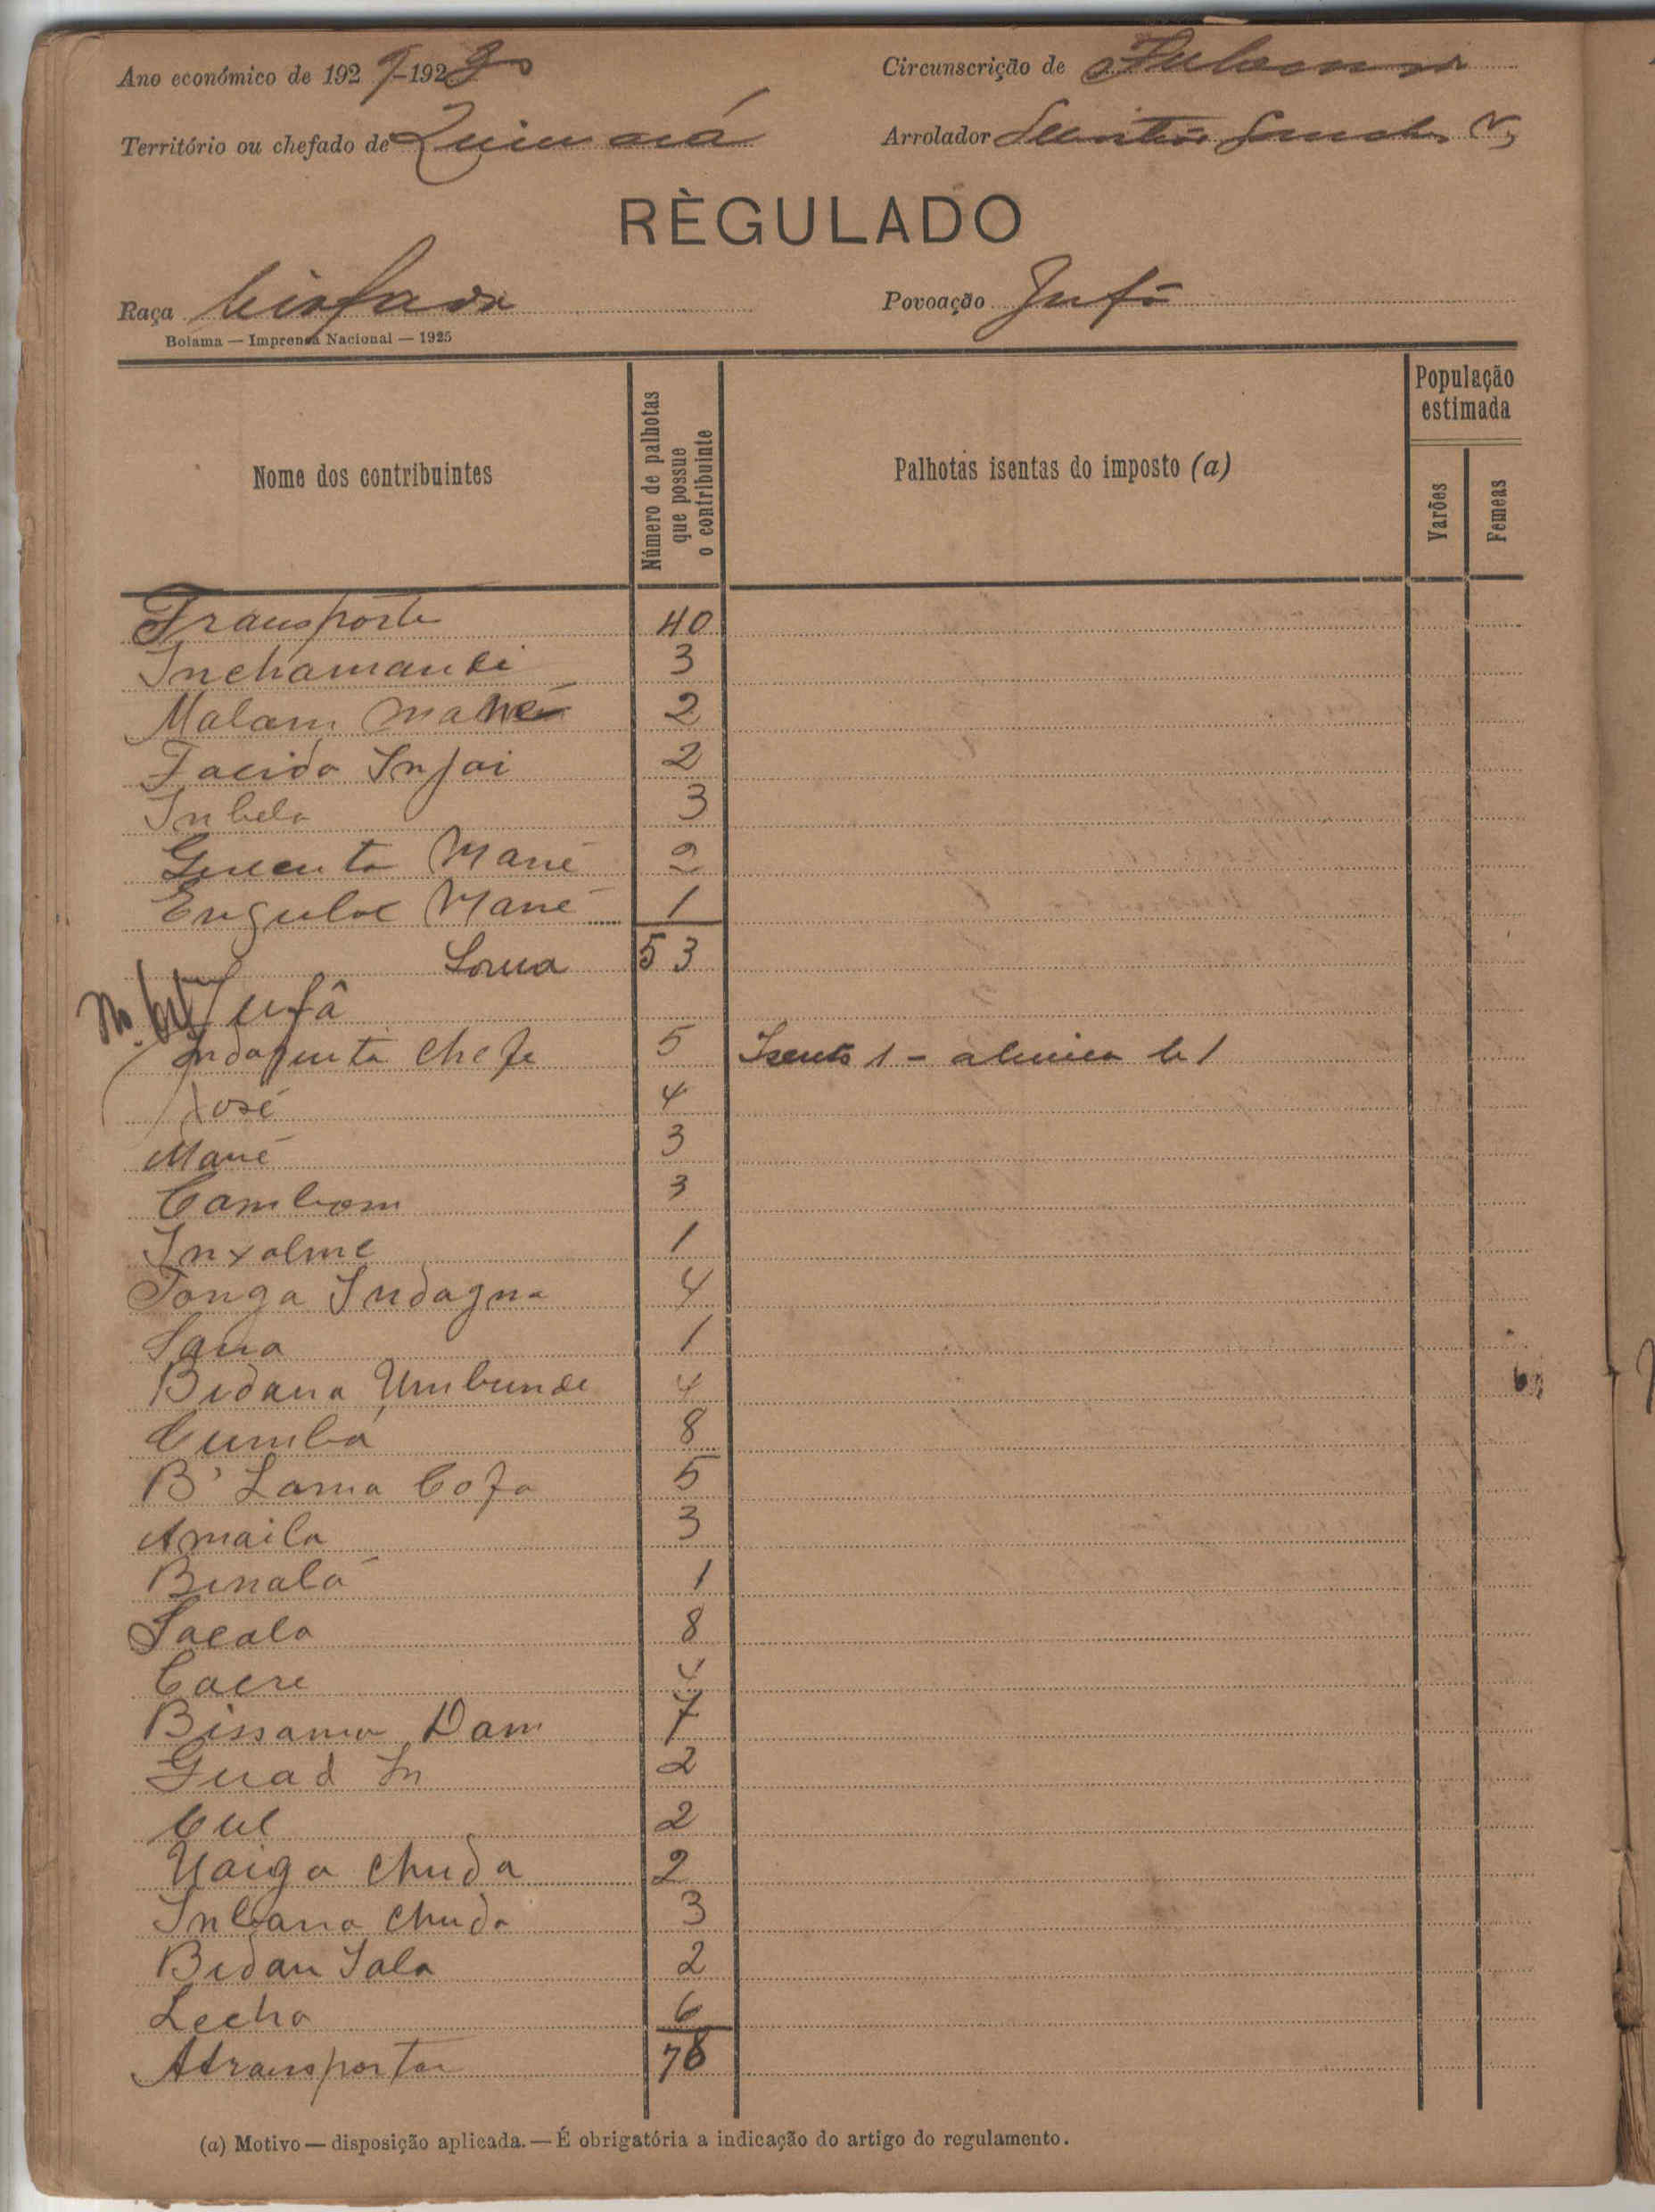 Ano económico de 1929-1930
Circunscrição de
Território ou chefado de
Arrolador
RÈGULADO
Raça
Povoação Jufá
Bolama — Imprensa Nacional — 1925
Nome dos contribuintes
Número de palhotas que possue o contribuinte
Palhotas isentas do imposto (a)
População estimada
Varões
Femeas
Transporte 40
Inchamandi 3
Malam Mané 2
Facida Injai 2
Inbela 3
Mané 2
Mané 1
Soma 53
Jufâ
chefe 5 Isento 1 -
José 4
Mané 3
Cambom 3
Inxalme 1
Tonga Indagna 4
Sana 1
Bidana Umbunde 4
Cumbá 8
B' Lama Cofa 5
Amaila 3
Binalá 1
Sacala 8
Cacre 4
Bissama Dam 7
Guad In 2
Cul 2
Uaiga chuda 2
Inbana chuda 3
Bidan Sala 2
Lecha 6
Atransportar 78
(a) Motivo — disposição aplicada. — É obrigatória a indicação do artigo do regulamento.